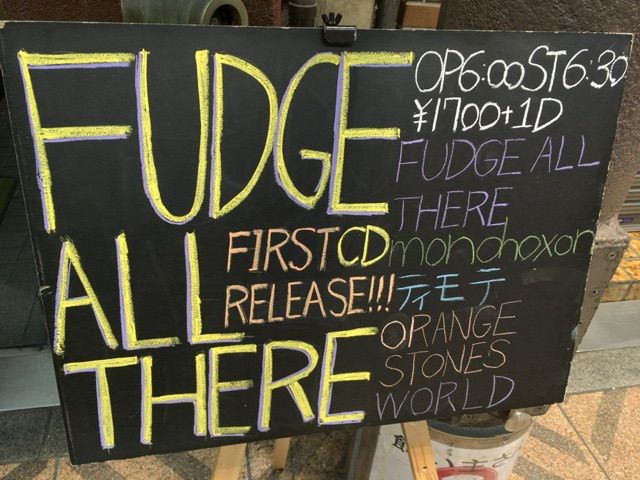 FUDGE
ALL
THERE
FIRST CD
RELEASE!!!
OP6:00 ST6:30
¥1700+1D
FUDGE ALL
THERE
monohoxon
ティモテ
ORANGE
STONES
WORLD